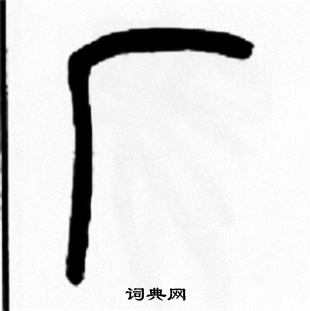 厂
词典网